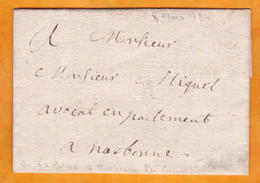 8 mars 1784
A Monsieur
Monsieur Miquel
avocat en parlement
a narbonne